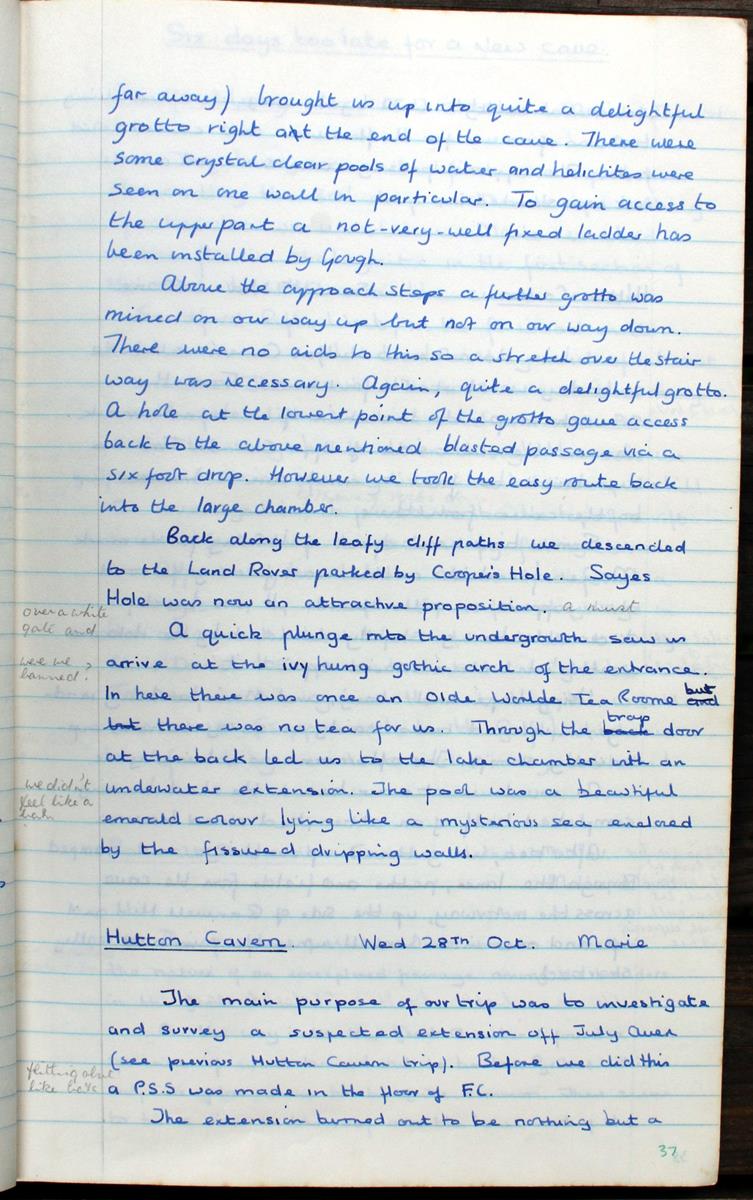 far away) brought us up into quite a delightful
grotto right at the end of the cave. There were
some crystal clear pools of water and helictites were
seen on one wall in particular. To gain access to
the upper part a not-very-well fixed ladder has
been installed by Gough.
Above the approach steps a further grotto was
missed on our way up but not on our way down.
There were no aids to this so a stretch over the stair
way was necessary. Again, quite a delightful grotto.
A hole at the lowest point of the grotto gave access
back to the above mentioned blasted passage via a
six foot drop. However we took the easy route back
into the large chamber.
Back along the leafy cliff paths we descended
to the Land Rover parked by Cooper's Hole. Sayes
Hole was now an attractive proposition. a must
over a white
gate and
A quick plunge into the undergrowth saw us
were we
banned?
arrive at the ivy hung gothic arch of the entrance.
In here there was once an Olde Worlde Tea Roome but and
but there was no tea for us. Through the trap back door
at the back led us to the lake chamber with an
we didn't
feel like a
bath
underwater extension. The pool was a beautiful
emerald colour lying like a mysterious sea enclosed
by the fissured dripping walls.
Hutton Cavern. Wed 28TH Oct. Marie
The main purpose of our trip was to investigate
and survey a suspected extension off July Aven
(see previous Hutton Cavern trip). Before we did this
flitting about
like bats
a P.S.S was made in the floor of F.C.
The extension turned out to be nothing but a
37